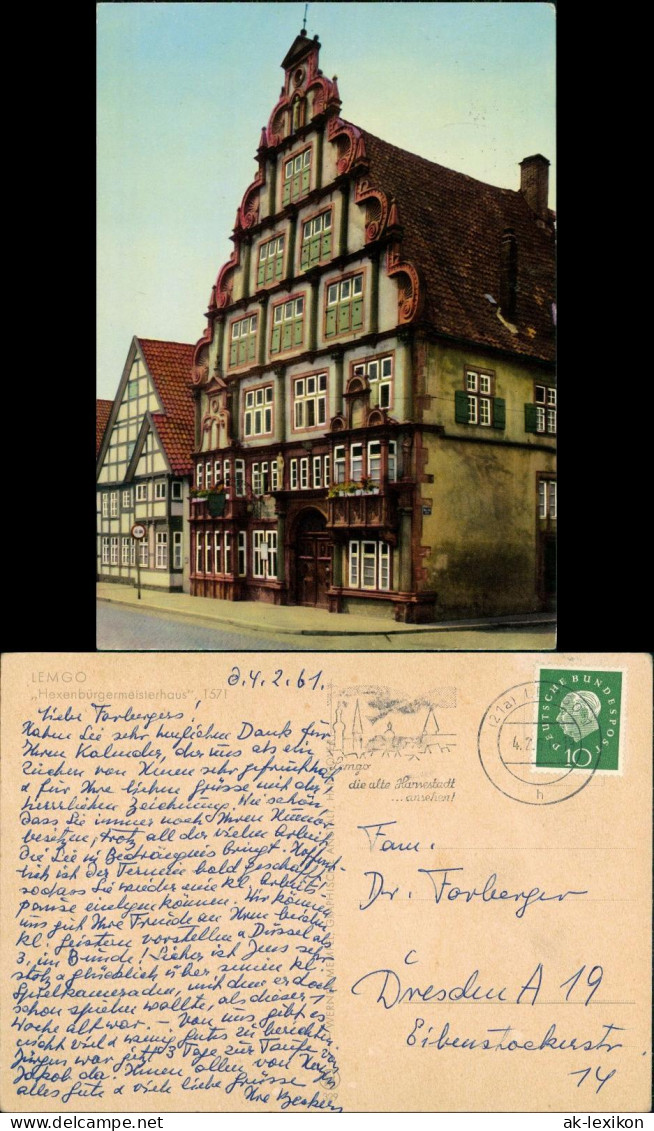 LEMGO
„Hexenbürgermeisterhaus", 1571
d. 4. 2. 61.
Liebe Forbergers!
Haben Sie sehr herzlichen Dank für
Ihren Kalender, der uns als ein
Zeichen von Ihnen sehr gefreut hat
& für Ihre lieben Grüsse mit der
herrlichen Zeichnung. Wie schön,
dass Sie immer noch Ihren Humor
besitzen, trotz all der vielen Arbeit
die Sie in Bedrängnis bringt. Hoffent-
lich ist der Termin bald geschafft
sodass Sie wieder eine kl. Arbeits-
pause einlegen können. Wir können
uns gut Ihre Freude an Ihren beiden
kl. Geistern vorstellen &
3. im Bunde! Sicher ist Jens sehr
stolz & glücklich über seinen kl.
Spielkameraden, mit dem er doch
schon spielen wollte, als dieser 1
Woche alt war. – Von uns gibt es
nicht viel & wenig Gutes zu berichten.
Jürgen war jetzt 3 Tage zur Taufe von
Jakob da. Ihnen allen von Herzen
alles Gute & viele liebe Grüsse
Ihre Beckers
Lemgo
die alte Hansestadt
...ansehen!
(21a) LEMGO
4.2.
h
DEUTSCHE BUNDESPOST
10
Fam.
Dr. Forberger
Dresden A 19
Eibenstockerstr.
14
ak-lexikon
© ak-lexikon.de